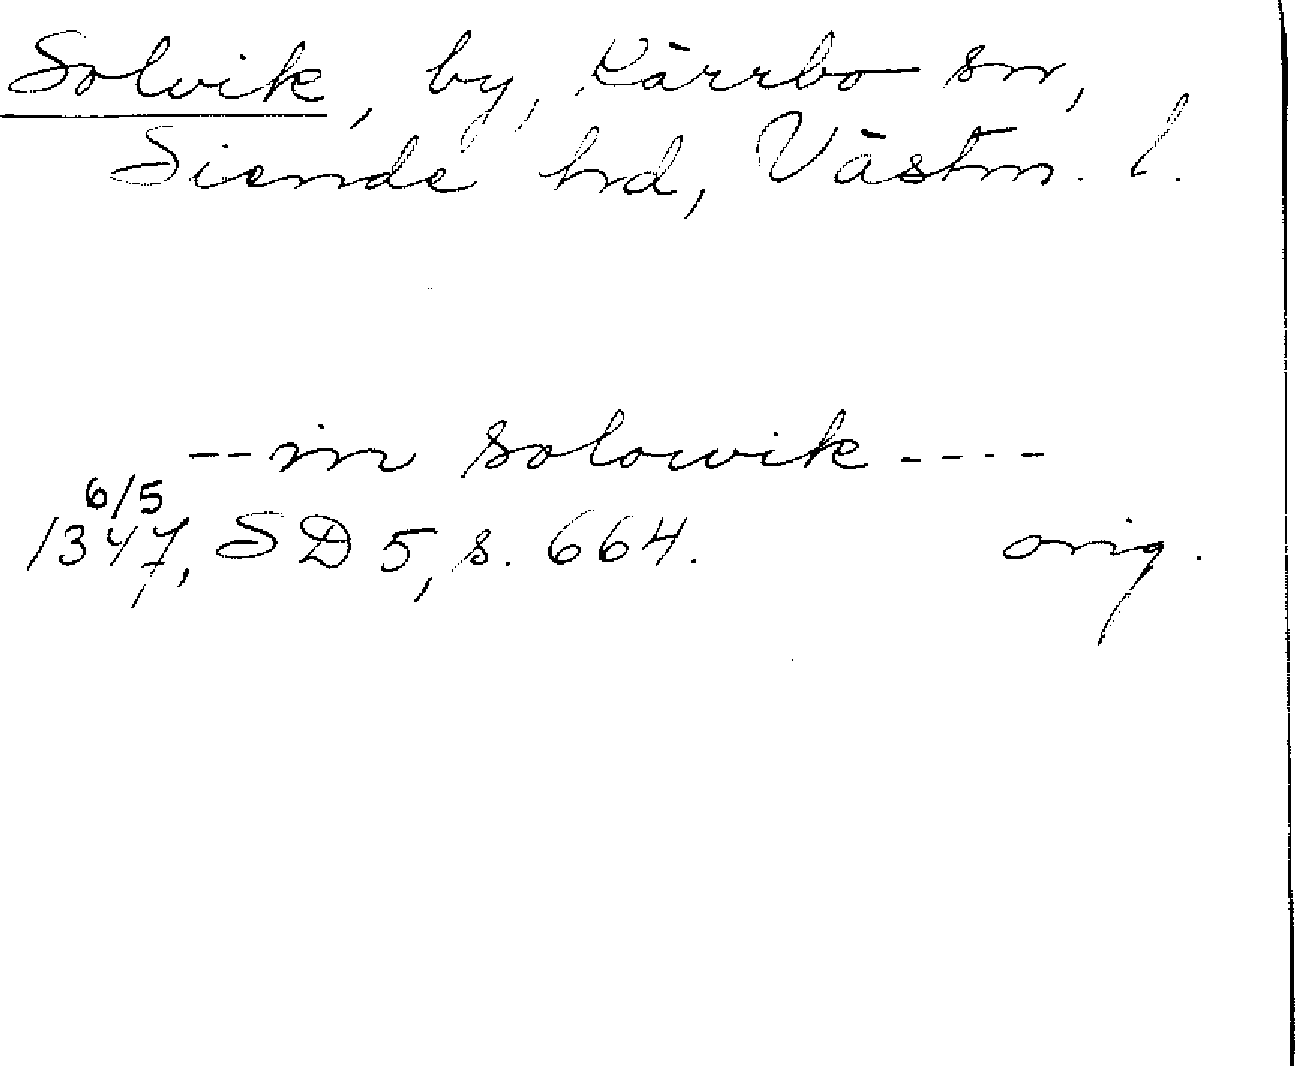 Solvik, by, Kärrbo sn,
Siende hd, Västm. l.
-- in solowik ----
6/5
1347, SD 5, s. 664. orig.